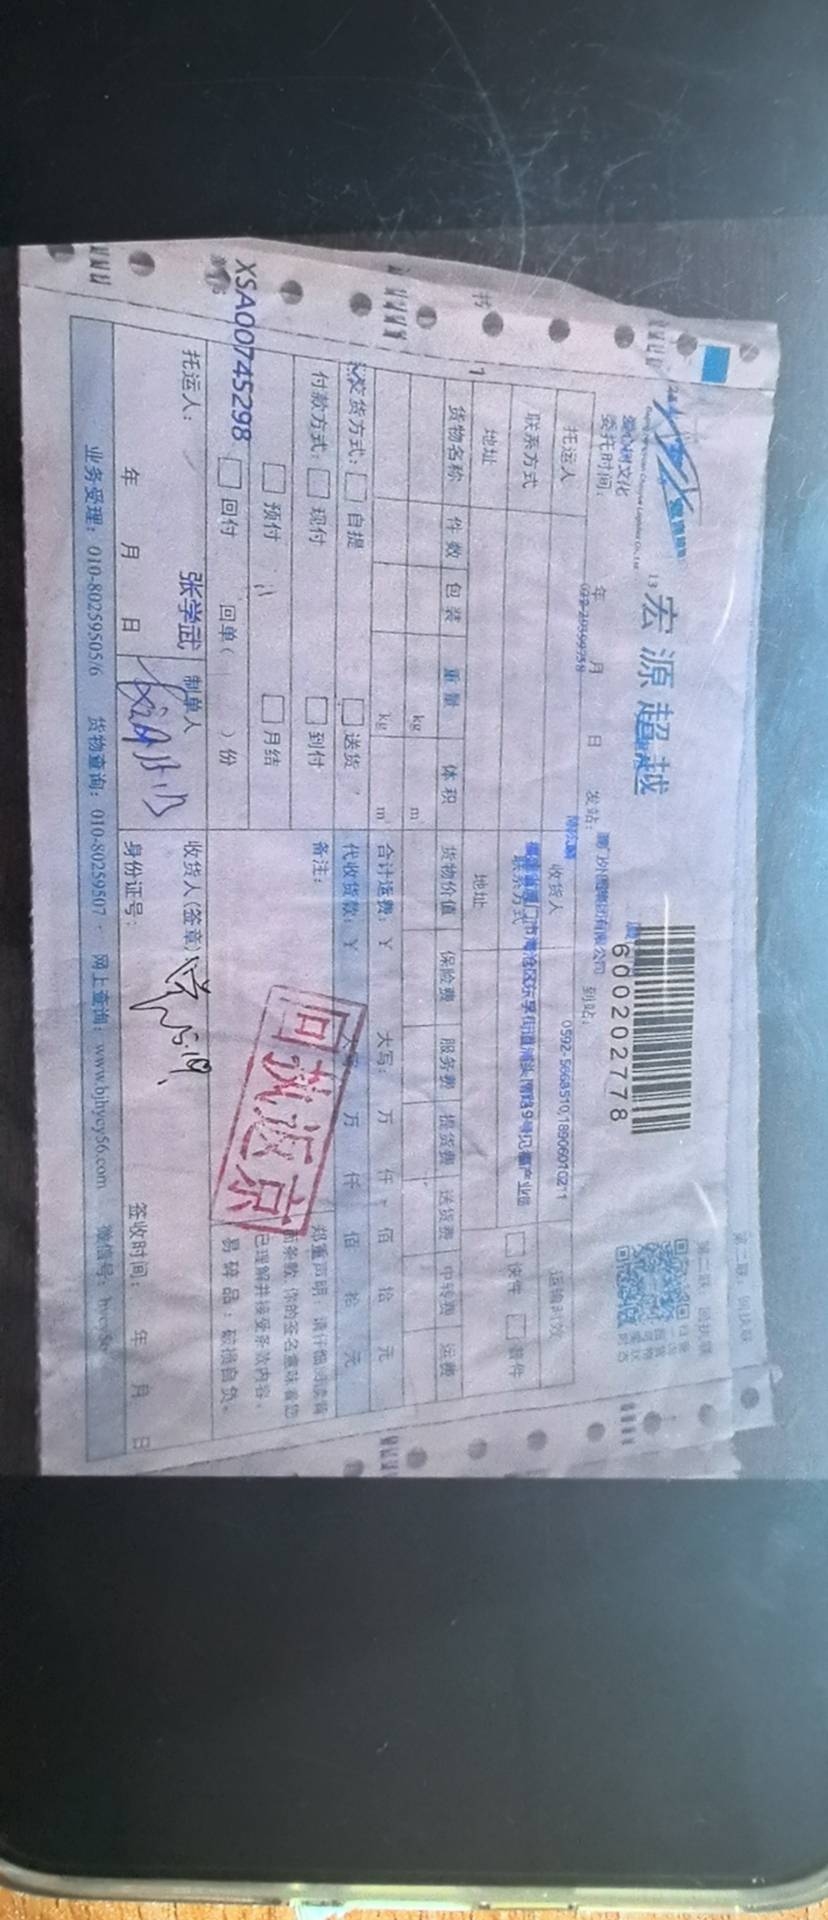 第二联 回执联
第二联 回执联
宏源超越
13
爱心树文化
委托时间: 年 月 日 发站: 到站:
600202778
托运人 收货人 0592-5668510,18906010211 运输时效
联系方式 联系方式 快件 普件
地址 地址
货物名称 件数 包装 重量 体积 货物价值 保险费 服务费 提货费 送货费 中转费 运费
kg m
kg m
书
1
交货方式: 自提 送货 合计运费: ¥ 大写: 万 仟 佰 拾 元
付款方式: 现付 到付 代收货款: ¥ 万 仟 佰 拾 元
预付 月结 备注:
回付 回单( )份
XSA00745298
回执返京
郑重声明: 请仔细阅读背
面条款 你的签名意味着您
已理解并接受条款内容。
易碎品: 破损自负。
托运人: 张学武 制单人 收货人(签章)
年 月 日 身份证号: 签收时间: 年 月 日
业务受理: 010-80259505/6 货物查询: 010-80259507 网上查询: www.bjhycy56.com 微信号: hycy56